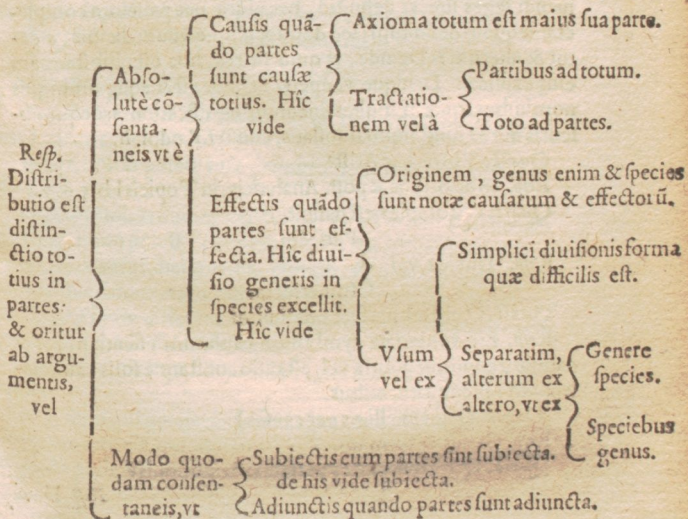 Resp.
Distri-
butio est
distin-
ctio to-
tius in
partes·
& oritur
ab argu-
mentis,
vel
Abso-
lutè cõ-
senta-
neis, vt è
Causis quã-
do partes
sunt causæ
totius. Hîc
vide
Axioma totum est maius sua parte.
Tractatio-
nem vel à
Partibus ad totum.
Toto ad partes.
Effectis quãdo
partes sunt ef-
fecta. Hîc diui-
sio generis in
species excellit.
Hîc vide
Originem, genus enim & species
sunt notæ causarum & effectorũ.
Vsum
vel ex
Simplici diuisionis forma
quæ difficilis est.
Separatim,
alterum ex
altero, vt ex
Genere
species.
Speciebus
genus.
Modo quo-
dam consen-
taneis, vt
Subiectis cum partes sint subiecta.
de his vide subiecta.
Adiunctis quando partes sunt adiuncta.